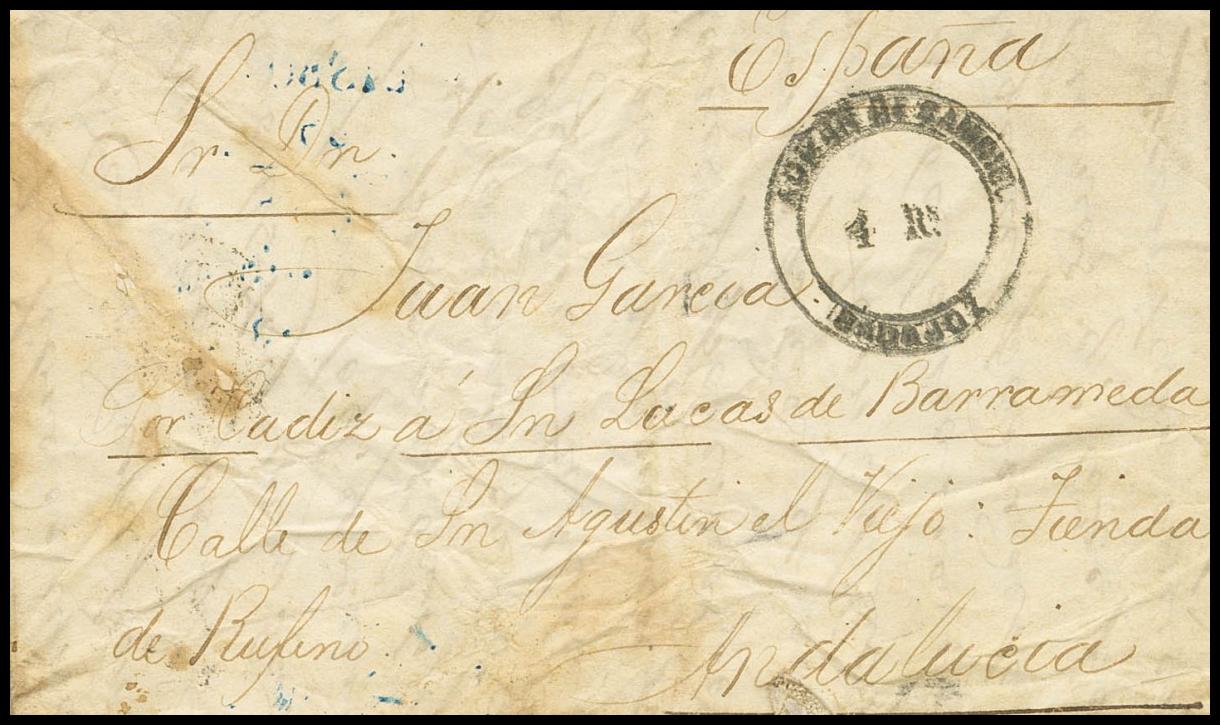 España
Sr. Dn.
Juan Garcia
Por Cadiz á Sn Lucas de Barrameda
Calle de Sn Agustin el Viejo: Tienda
de Rufino.
Andalucia
4 Rs